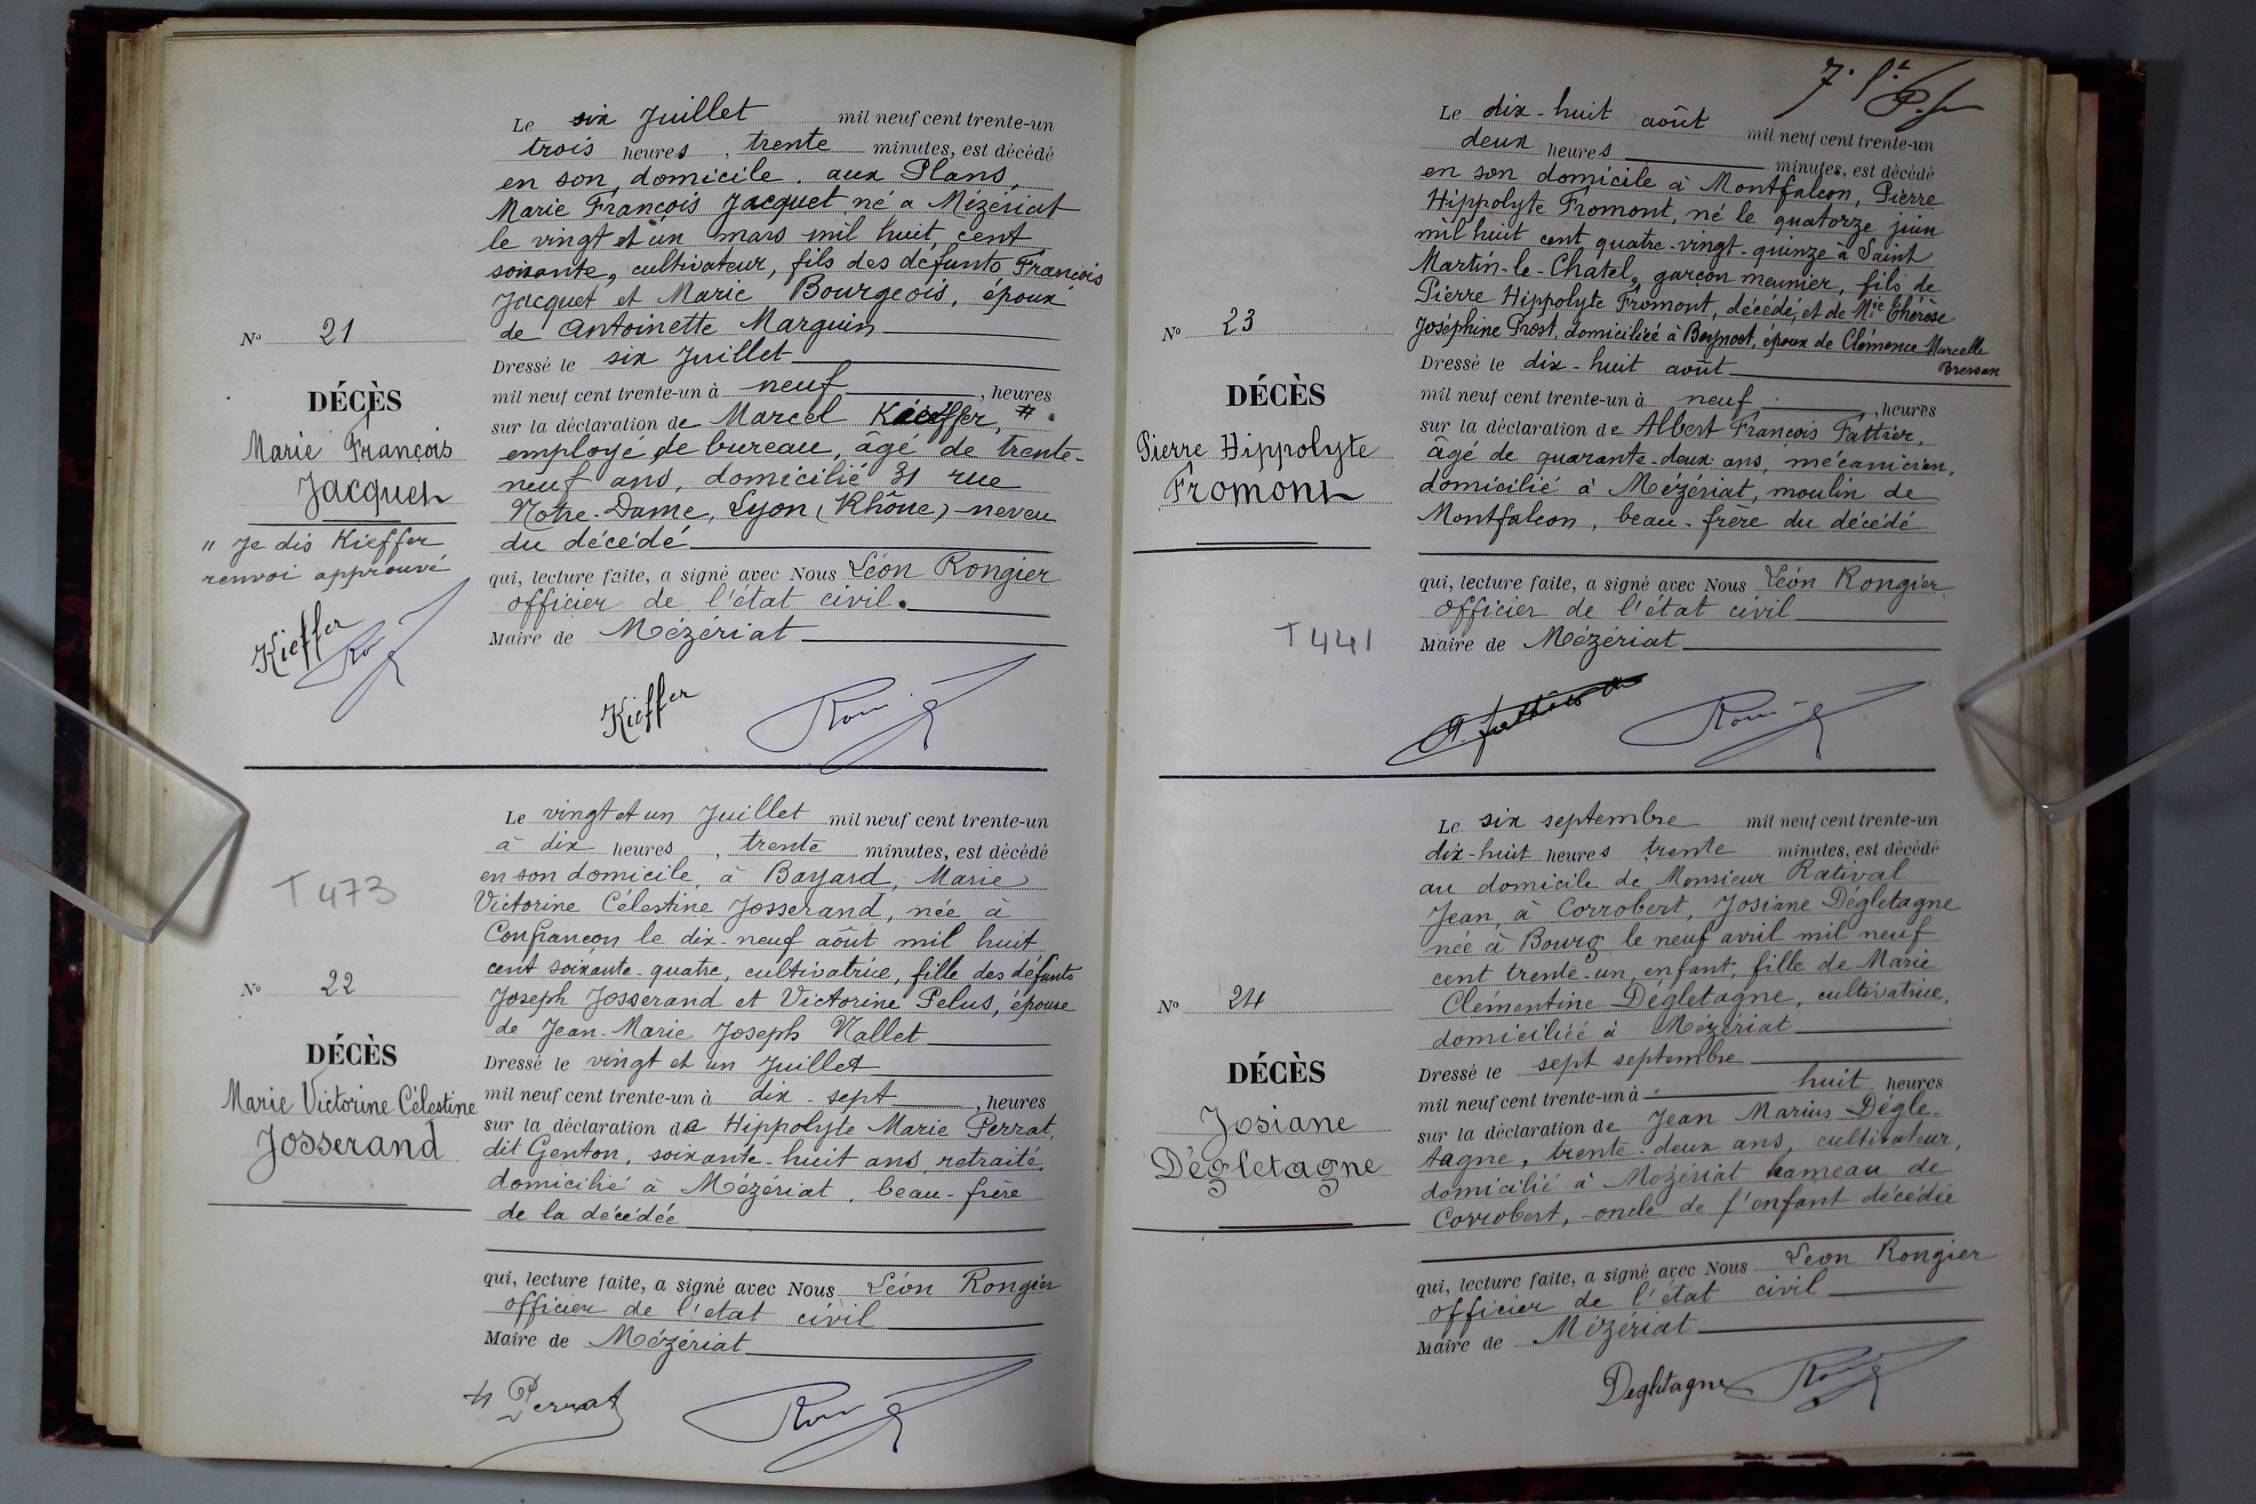 Le six Juillet mil neuf cent trente-un
trois heures, trente minutes, est décédé
en son domicile. aux Plans,
Marie François Jacquet né a Mézériat
le vingt et un mars mil huit cent
soixante, cultivateur, fils des défunts François
Jacquet et Marie Bourgeois, époux
de Antoinette Marguin
N° 21
Dressé le six Juillet
mil neuf cent trente-un à neuf, heures
DÉCÈS
sur la déclaration de Marcel Kieffer, #
Marie François
employé de bureau, âgé de trente-
Jacquet
neuf ans, domicilié 31 rue
Notre-Dame, Lyon (Rhône) neveu
" Je dis Kieffer
du décédé
renvoi approuvé
qui, lecture faite, a signé avec Nous Léon Rongier
officier de l'état civil.
Maire de Mézériat
Kieffer
Kieffer
Le vingt et un Juillet mil neuf cent trente-un
à dix heures, trente minutes, est décédé
T 473
en son domicile, à Bayard, Marie
Victorine Célestine Josserand, née à
Confrançon le dix-neuf août mil huit
cent soixante-quatre, cultivatrice, fille des défunts
N° 22
Joseph Josserand et Victorine Pelus, épouse
de Jean-Marie Joseph Nallet
DÉCÈS
Dressé le vingt et un Juillet
Marie Victorine Célestine
mil neuf cent trente-un à dix-sept, heures
Josserand
sur la déclaration de Hippolyte Marie Perrat,
dit Genton, soixante-huit ans, retraité,
domicilié à Mézériat, beau-frère
de la décédée
qui, lecture faite, a signé avec Nous Léon Rongier
officier de l'etat civil
Maire de Mézériat
H Perrat
Le dix-huit août mil neuf cent trente-un
deux heures minutes, est décédé
en son domicile à Montfalcon, Pierre
Hippolyte Fromont, né le quatorze juin
mil huit cent quatre-vingt-quinze à Saint
Martin-le-Chatel, garçon meunier, fils de
Pierre Hippolyte Fromont, décédé, et de Mie Thérèse
N° 23
Joséphine Prost, domiciliée à Beynost, époux de Clémence Marcelle
Bressan
Dressé le dix-huit août
DÉCÈS
mil neuf cent trente-un à neuf, heures
sur la déclaration de Albert François Fattier,
Pierre Hippolyte
âgé de quarante-deux ans, mécanicien,
Fromont
domicilié à Mézériat, moulin de
Montfalcon, beau-frère du décédé
qui, lecture faite, a signé avec Nous Léon Rongier
officier de l'état civil
T 441
Maire de Mézériat
Le six septembre mil neuf cent trente-un
dix-huit heures trente minutes, est décédé
au domicile de Monsieur Ratival
Jean, à Corrobert, Josiane Dégletagne
née à Bourg le neuf avril mil neuf
cent trente-un, enfant, fille de Marie
Clémentine Dégletagne, cultivatrice,
N° 24
domiciliée à Mézériat
DÉCÈS
Dressé le sept septembre
mil neuf cent trente-un à huit heures
Josiane
sur la déclaration de Jean Marius Dégle-
Dégletagne
tagne, trente-deux ans, cultivateur,
domicilié à Mézériat hameau de
Corrobert, oncle de l'enfant décédée
qui, lecture faite, a signé avec Nous Leon Rongier
officier de l'état civil
Maire de Mézériat
Degletagne